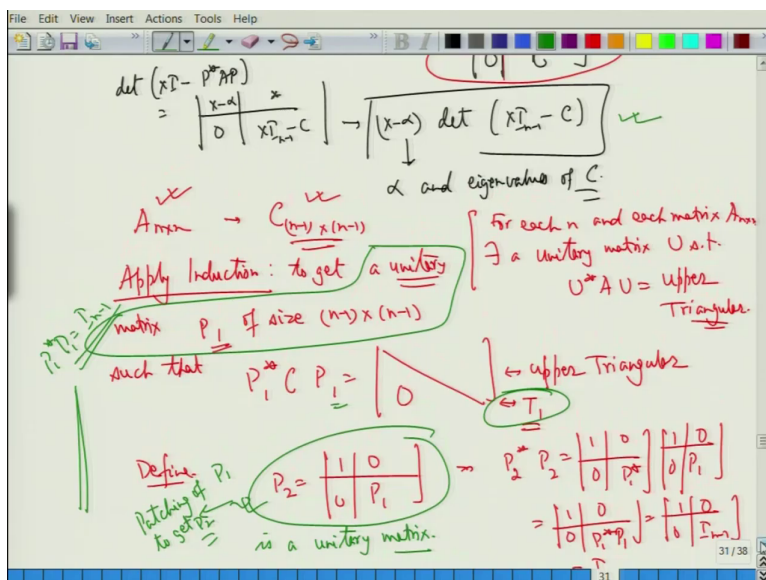 File Edit View Insert Actions Tools Help
det (xI - P*AP)
= | x-α | * |
| 0 | xI_{n-1} - C | → (x-α) det (xI_{n-1} - C)
α and eigenvalues of C.
A_{n×n} → C_{(n-1)×(n-1)}
For each n and each matrix A_{n×n}
∃ a unitary matrix U s.t.
U*AU = upper
Triangular.
Apply Induction: to get a unitary
matrix P_1 of size (n-1)×(n-1)
P_1*P_1 = I_{n-1}
such that P_1* C P_1 = [ 0 ] ↔ upper Triangular
↔ T_1
Define P_2 = [ 1 | 0
0 | P_1 ]
is a unitary matrix.
Patching of P_1
to get P_2
P_2* P_2 = [ 1 | 0
0 | P_1* ] [ 1 | 0
0 | P_1 ]
= [ 1 | 0
0 | P_1*P_1 ] = [ 1 | 0
0 | I_{n-1} ]
= I
31/38
31